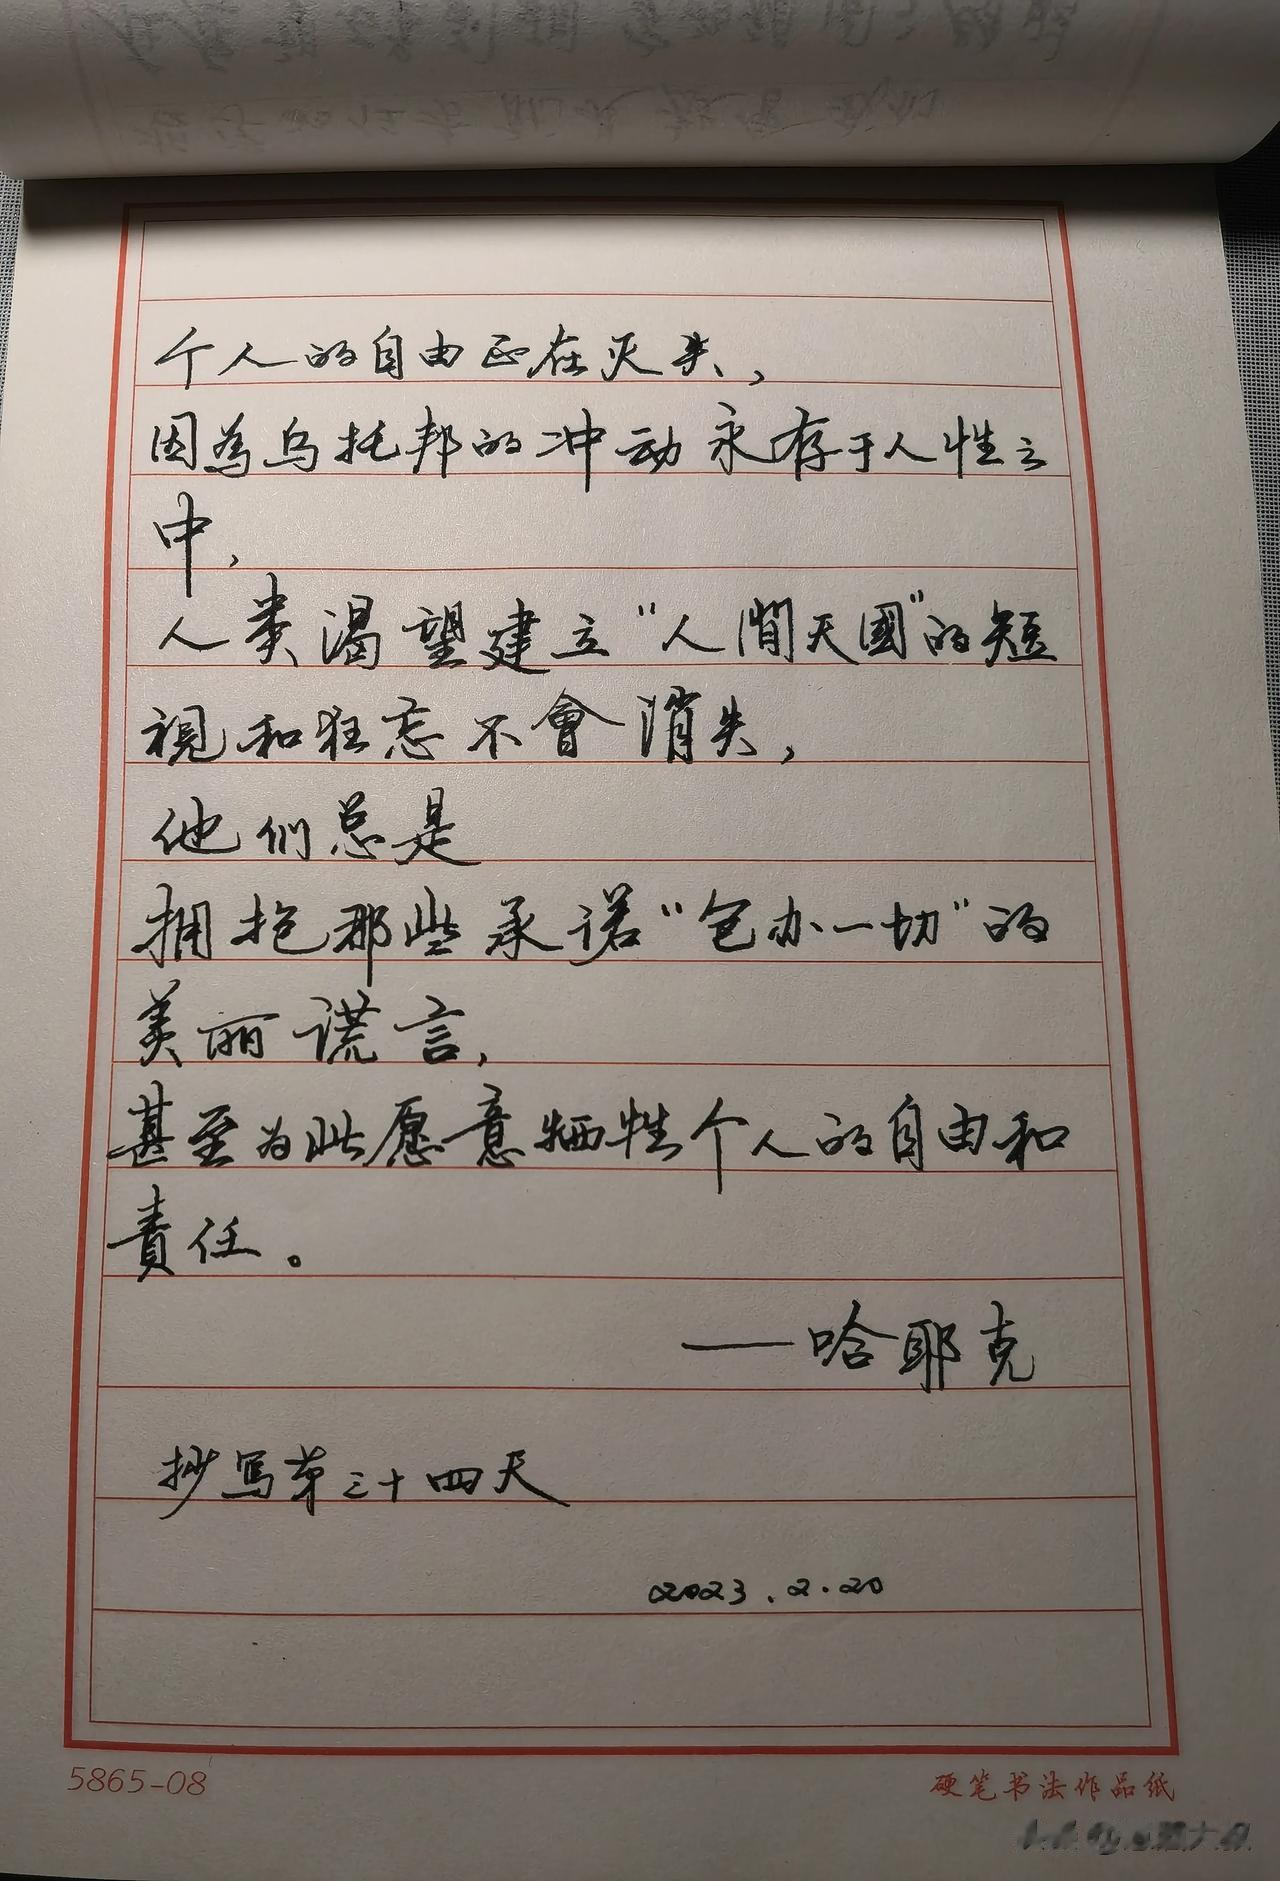 个人的自由正在灭失，
因為乌托邦的冲动永存于人性之
中，
人类渴望建立“人間天國”的短
視和狂忘不會消失，
他们总是
拥抱那些承诺“包办一切”的
美丽谎言，
甚至为此愿意牺牲个人的自由和
責任。
——哈耶克
抄写第三十四天
2023.2.20
5865-08
硬笔书法作品纸